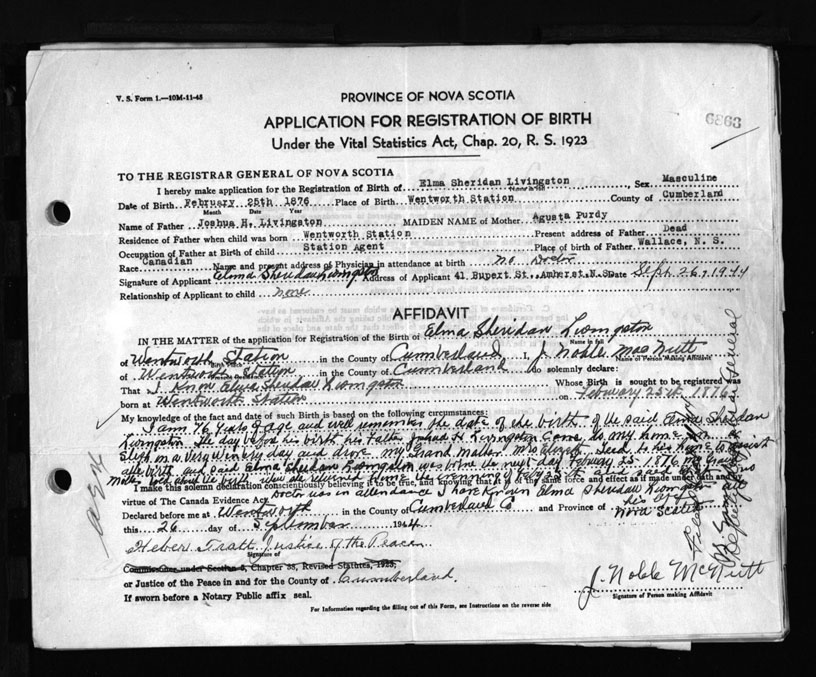 V. S. Form 1.—10M-11-43
PROVINCE OF NOVA SCOTIA
6863
APPLICATION FOR REGISTRATION OF BIRTH
Under the Vital Statistics Act, Chap. 20, R. S. 1923
TO THE REGISTRAR GENERAL OF NOVA SCOTIA
I hereby make application for the Registration of Birth of Elma Sheridan Livingston, Sex Masculine
Name in full
Date of Birth February 25th 1876 Place of Birth Wentworth Station County of Cumberland
Month Date Year
Name of Father Joshua H. Livingston MAIDEN NAME of Mother Agusta Purdy
Residence of Father when child was born Wentworth Station Present address of Father Dead
Occupation of Father at Birth of child Station Agent Place of birth of Father Wallace, N. S.
Race Canadian Name and present address of Physician in attendance at birth no Doctor
Signature of Applicant Elma Sheridan Livingston Address of Applicant 41 Rupert St., Amherst, N.S. Date Sept. 26, 1944
Relationship of Applicant to child none
AFFIDAVIT
IN THE MATTER of the application for Registration of the Birth of Elma Sheridan Livingston
Name in full
of Wentworth Station in the County of Cumberland I, J. Noble MacNutt
Name of Person Making Affidavit
of Wentworth Station in the County of Cumberland do solemnly declare:
That I Know Elma Sheridan Livingston Whose Birth is sought to be registered was
born at Wentworth Station on February 25th 1876
My knowledge of the fact and date of such Birth is based on the following circumstances:
I am 76 years of age and well remember the date of the birth of the said Elma Sheridan
Livingston. The day before his birth his Father Joshua H. Livingston came to my home
Sleigh on a very wintery day and drove my Grand Mother Mrs to his home to assist
at birth and said Elma Sheridan Livingston was born the next day February 25 1876
I make this solemn declaration conscientiously believing it to be true, and knowing that it is of the same force and effect as if made under oath and by
virtue of The Canada Evidence Act. Doctor was in attendance I have Known Elma Sheridan Livingston
Declared before me at Wentworth in the County of Cumberland Co and Province of Nova Scotia
this 26 day of September 1944
Heber Tratt Justice of the Peace
Signature of
Commissioner under Section 3, Chapter 38, Revised Statutes, 1923,
or Justice of the Peace in and for the County of Cumberland.
J. Noble McNutt
If sworn before a Notary Public affix seal.
Signature of Person making Affidavit
For Information regarding the filling out of this Form, see Instructions on the reverse side
Deputy Registrar General